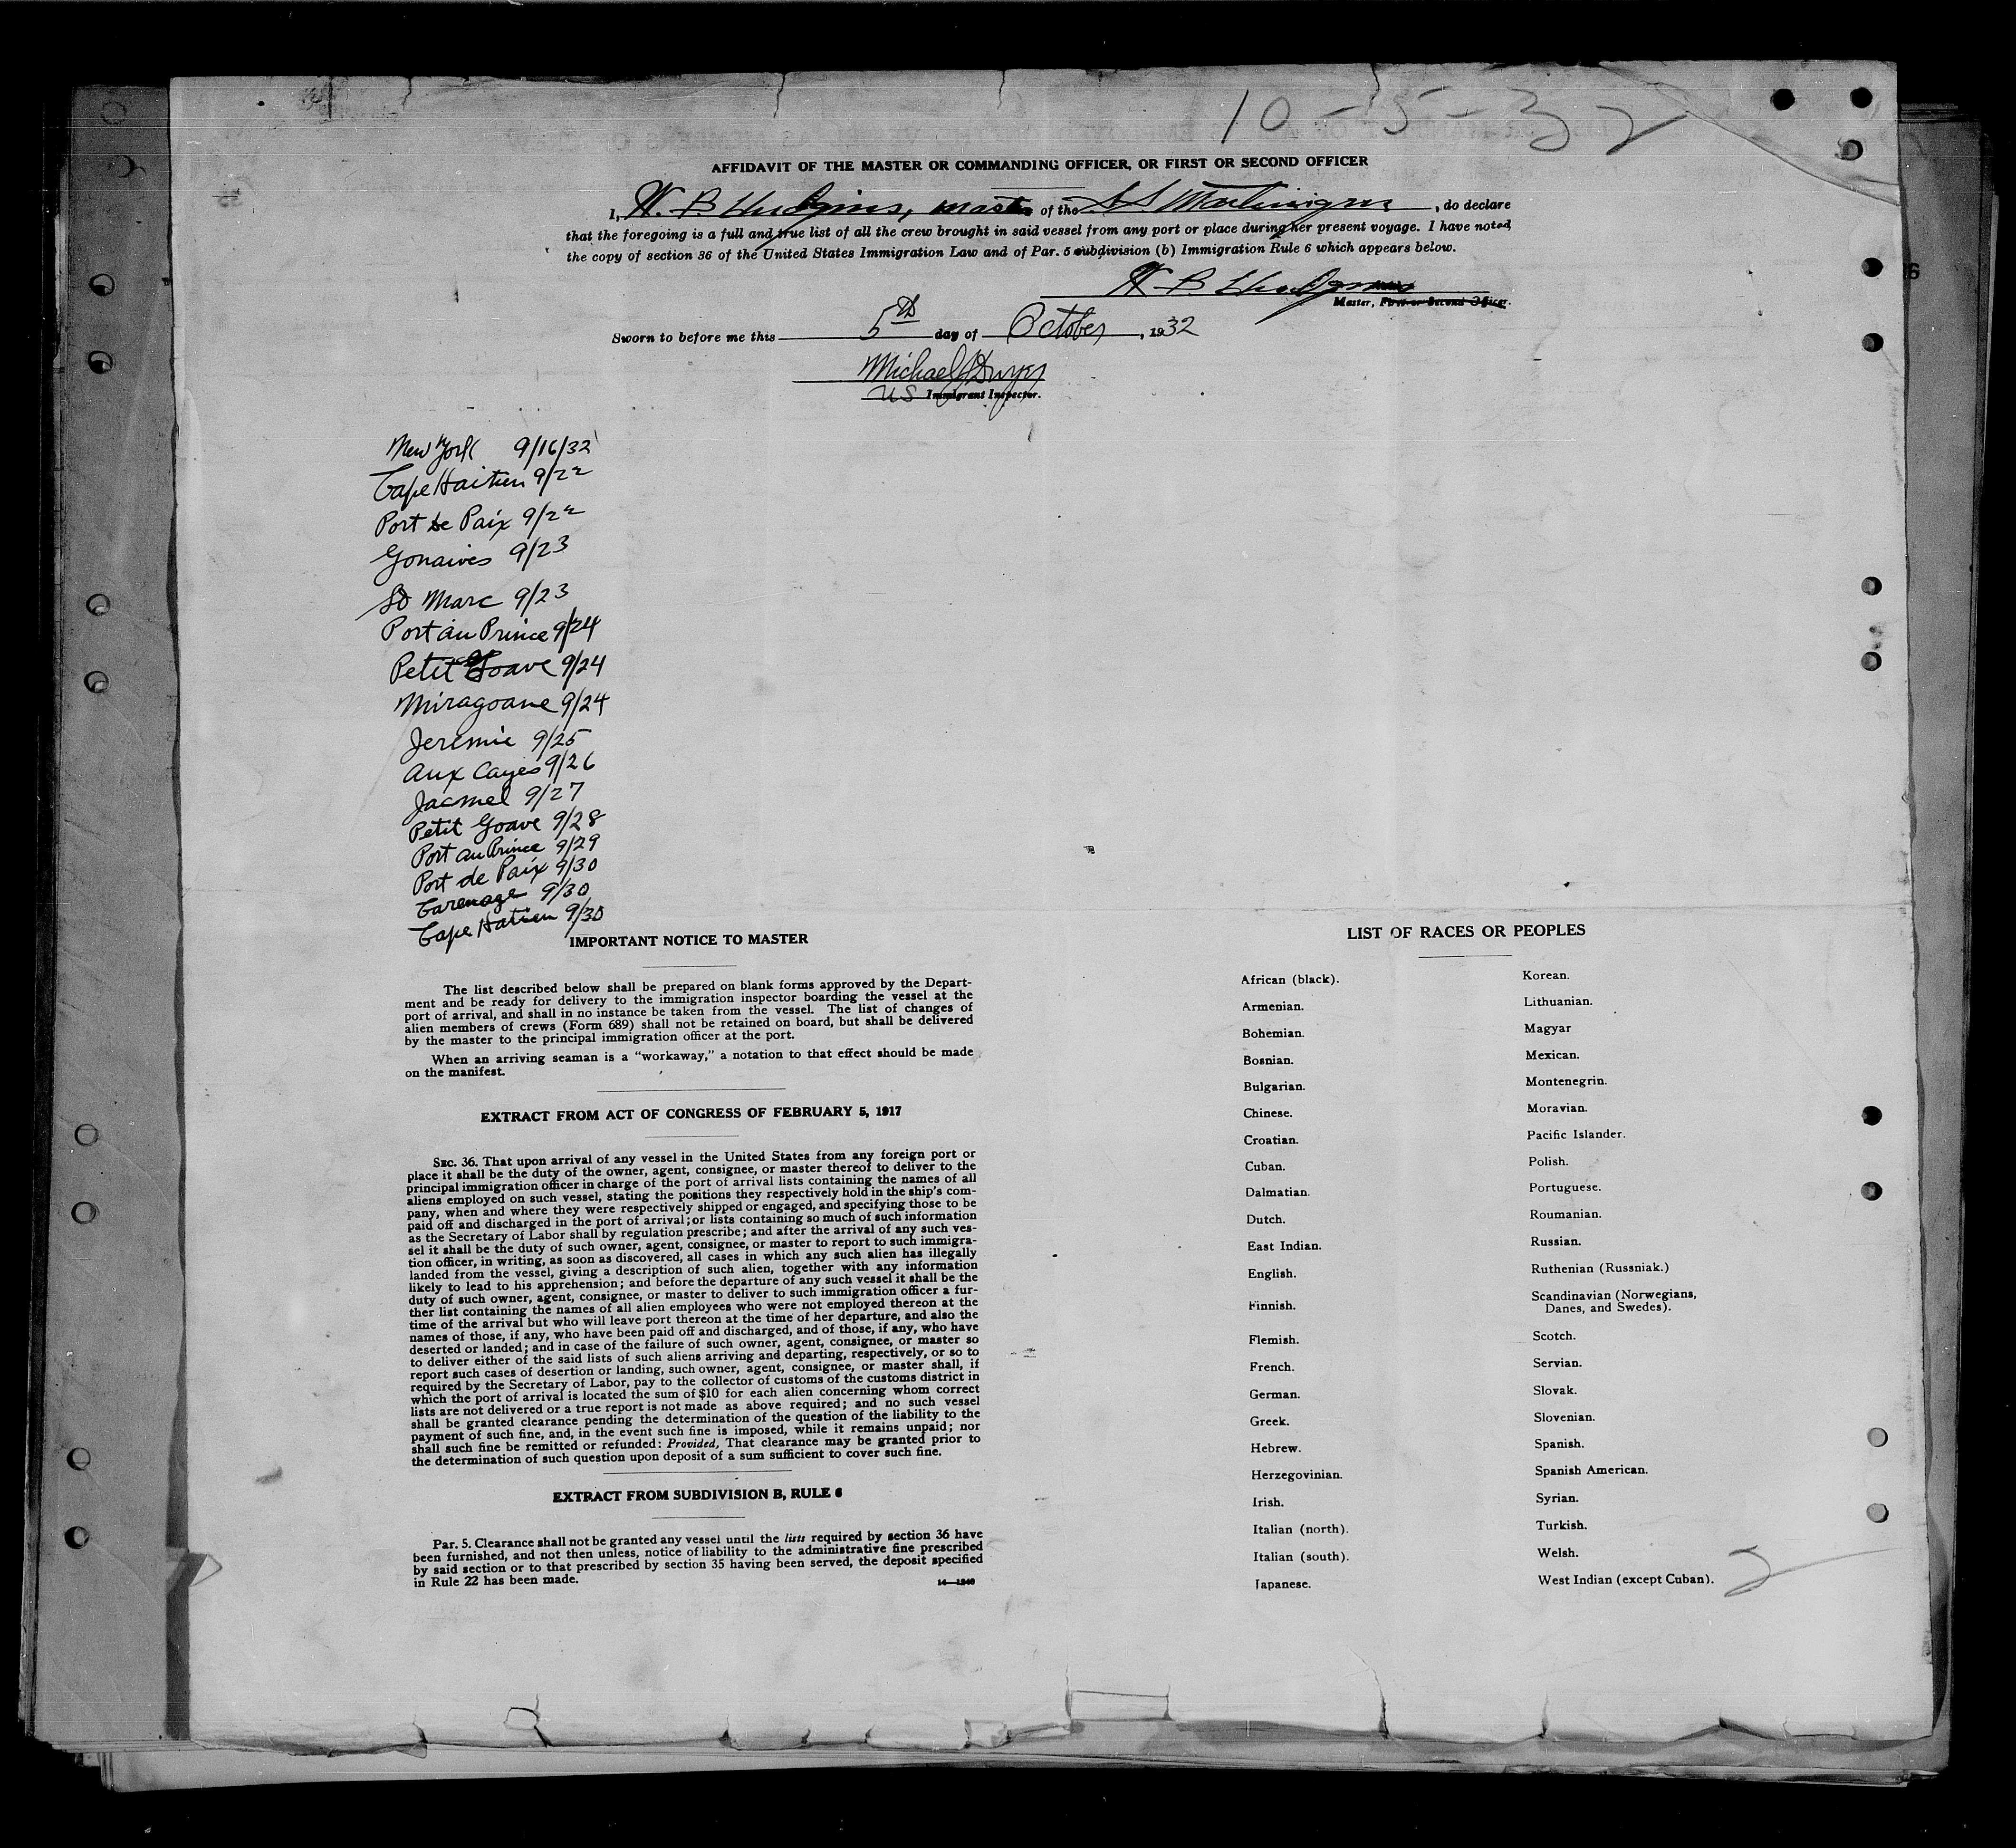 10-5-32
AFFIDAVIT OF THE MASTER OR COMMANDING OFFICER, OR FIRST OR SECOND OFFICER
I, W. B. Hudgins, master of the S.S. Martinique, do declare
that the foregoing is a full and true list of all the crew brought in said vessel from any port or place during her present voyage. I have noted
the copy of section 36 of the United States Immigration Law and of Par. 5 subdivision (b) Immigration Rule 6 which appears below.
W. B. Hudgins
Master, First or Second Officer.
Sworn to before me this 5th day of October, 1932
Michael J Dwyer
US Immigrant Inspector.
New York 9/16/32
Cape Haitien 9/22
Port de Paix 9/22
Gonaives 9/23
St Marc 9/23
Port au Prince 9/24
Petit Goave 9/24
Miragoane 9/24
Jeremie 9/25
Aux Cayes 9/26
Jacmel 9/27
Petit Goave 9/28
Port au Prince 9/29
Port de Paix 9/30
Carenage 9/30
Cape Hatien 9/30
IMPORTANT NOTICE TO MASTER
The list described below shall be prepared on blank forms approved by the Depart-
ment and be ready for delivery to the immigration inspector boarding the vessel at the
port of arrival, and shall in no instance be taken from the vessel. The list of changes of
alien members of crews (Form 689) shall not be retained on board, but shall be delivered
by the master to the principal immigration officer at the port.
When an arriving seaman is a "workaway," a notation to that effect should be made
on the manifest.
EXTRACT FROM ACT OF CONGRESS OF FEBRUARY 5, 1917
SEC. 36. That upon arrival of any vessel in the United States from any foreign port or
place it shall be the duty of the owner, agent, consignee, or master thereof to deliver to the
principal immigration officer in charge of the port of arrival lists containing the names of all
aliens employed on such vessel, stating the positions they respectively hold in the ship's com-
pany, when and where they were respectively shipped or engaged, and specifying those to be
paid off and discharged in the port of arrival; or lists containing so much of such information
as the Secretary of Labor shall by regulation prescribe; and after the arrival of any such ves-
sel it shall be the duty of such owner, agent, consignee, or master to report to such immigra-
tion officer, in writing, as soon as discovered, all cases in which any such alien has illegally
landed from the vessel, giving a description of such alien, together with any information
likely to lead to his apprehension; and before the departure of any such vessel it shall be the
duty of such owner, agent, consignee, or master to deliver to such immigration officer a fur-
ther list containing the names of all alien employees who were not employed thereon at the
time of the arrival but who will leave port thereon at the time of her departure, and also the
names of those, if any, who have been paid off and discharged, and of those, if any, who have
deserted or landed; and in case of the failure of such owner, agent, consignee, or master so
to deliver either of the said lists of such aliens arriving and departing, respectively, or so to
report such cases of desertion or landing, such owner, agent, consignee, or master shall, if
required by the Secretary of Labor, pay to the collector of customs of the customs district in
which the port of arrival is located the sum of $10 for each alien concerning whom correct
lists are not delivered or a true report is not made as above required; and no such vessel
shall be granted clearance pending the determination of the question of the liability to the
payment of such fine, and, in the event such fine is imposed, while it remains unpaid; nor
shall such fine be remitted or refunded: Provided, That clearance may be granted prior to
the determination of such question upon deposit of a sum sufficient to cover such fine.
EXTRACT FROM SUBDIVISION B, RULE 6
Par. 5. Clearance shall not be granted any vessel until the lists required by section 36 have
been furnished, and not then unless, notice of liability to the administrative fine prescribed
by said section or to that prescribed by section 35 having been served, the deposit specified
in Rule 22 has been made.
LIST OF RACES OR PEOPLES
African (black).
Armenian.
Bohemian.
Bosnian.
Bulgarian.
Chinese.
Croatian.
Cuban.
Dalmatian.
Dutch.
East Indian.
English.
Finnish.
Flemish.
French.
German.
Greek.
Hebrew.
Herzegovinian.
Irish.
Italian (north).
Italian (south).
Japanese.
Korean.
Lithuanian.
Magyar
Mexican.
Montenegrin.
Moravian.
Pacific Islander.
Polish.
Portuguese.
Roumanian.
Russian.
Ruthenian (Russniak.)
Scandinavian (Norwegians,
Danes, and Swedes).
Scotch.
Servian.
Slovak.
Slovenian.
Spanish.
Spanish American.
Syrian.
Turkish.
Welsh.
West Indian (except Cuban).
2